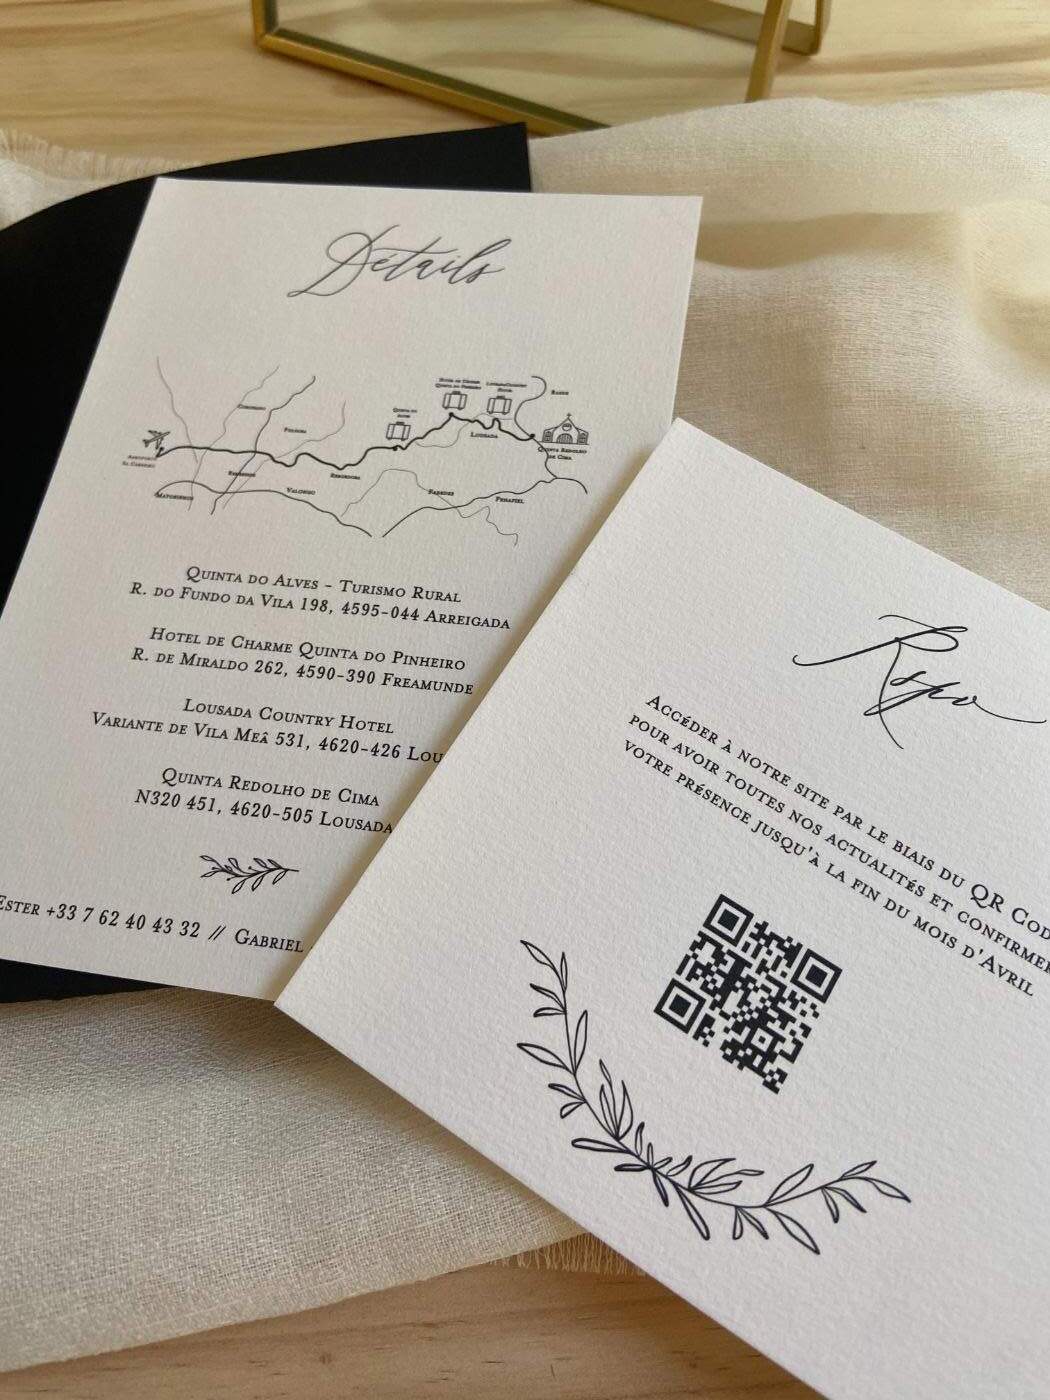 Détails
Hotel de Charme
Quinta do Pinheiro
Lousada Country
Hotel
Quinta do
Alves
Lousada
Quinta Redolho
de Cima
Aeroporto
Sá Carneiro
Coronado
Folgosa
Ermesinde
Rebordosa
Matosinhos
Valongo
Paredes
Penafiel
Quinta do Alves - Turismo Rural
R. do Fundo da Vila 198, 4595-044 Arreigada
Hotel de Charme Quinta do Pinheiro
R. de Miraldo 262, 4590-390 Freamunde
Lousada Country Hotel
Variante de Vila Meã 531, 4620-426 Lou
Quinta Redolho de Cima
N320 451, 4620-505 Lousada
Ester +33 7 62 40 43 32 // Gabriel
Rsvp
Accéder à notre site par le biais du QR Cod
pour avoir toutes nos actualités et confirmer
votre présence jusqu'à la fin du mois d'Avril